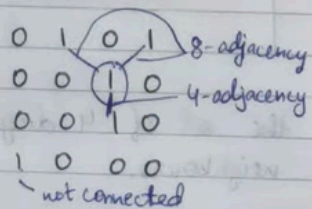 0 1 0 1 8-adjacency
0 0 1 0
4-adjacency
0 0 1 0
1 0 0 0
not connected